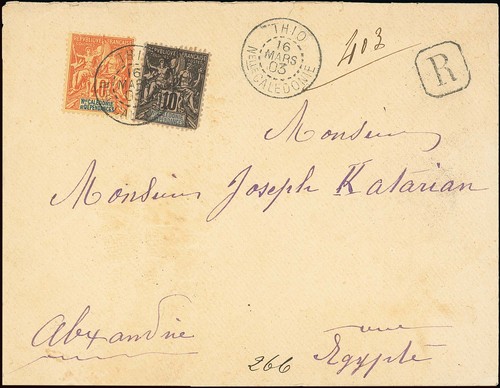 RÉPUBLIQUE FRANÇAISE
40
Nlle CALÉDONIE
ET DÉPENDANCES
RÉPUBLIQUE FRANÇAISE
10
THIO
16
MARS
03
Nelle CALÉDONIE
403
R
Monsieur
Monsieur Joseph Katarian
Alexandrie
266
Egypte